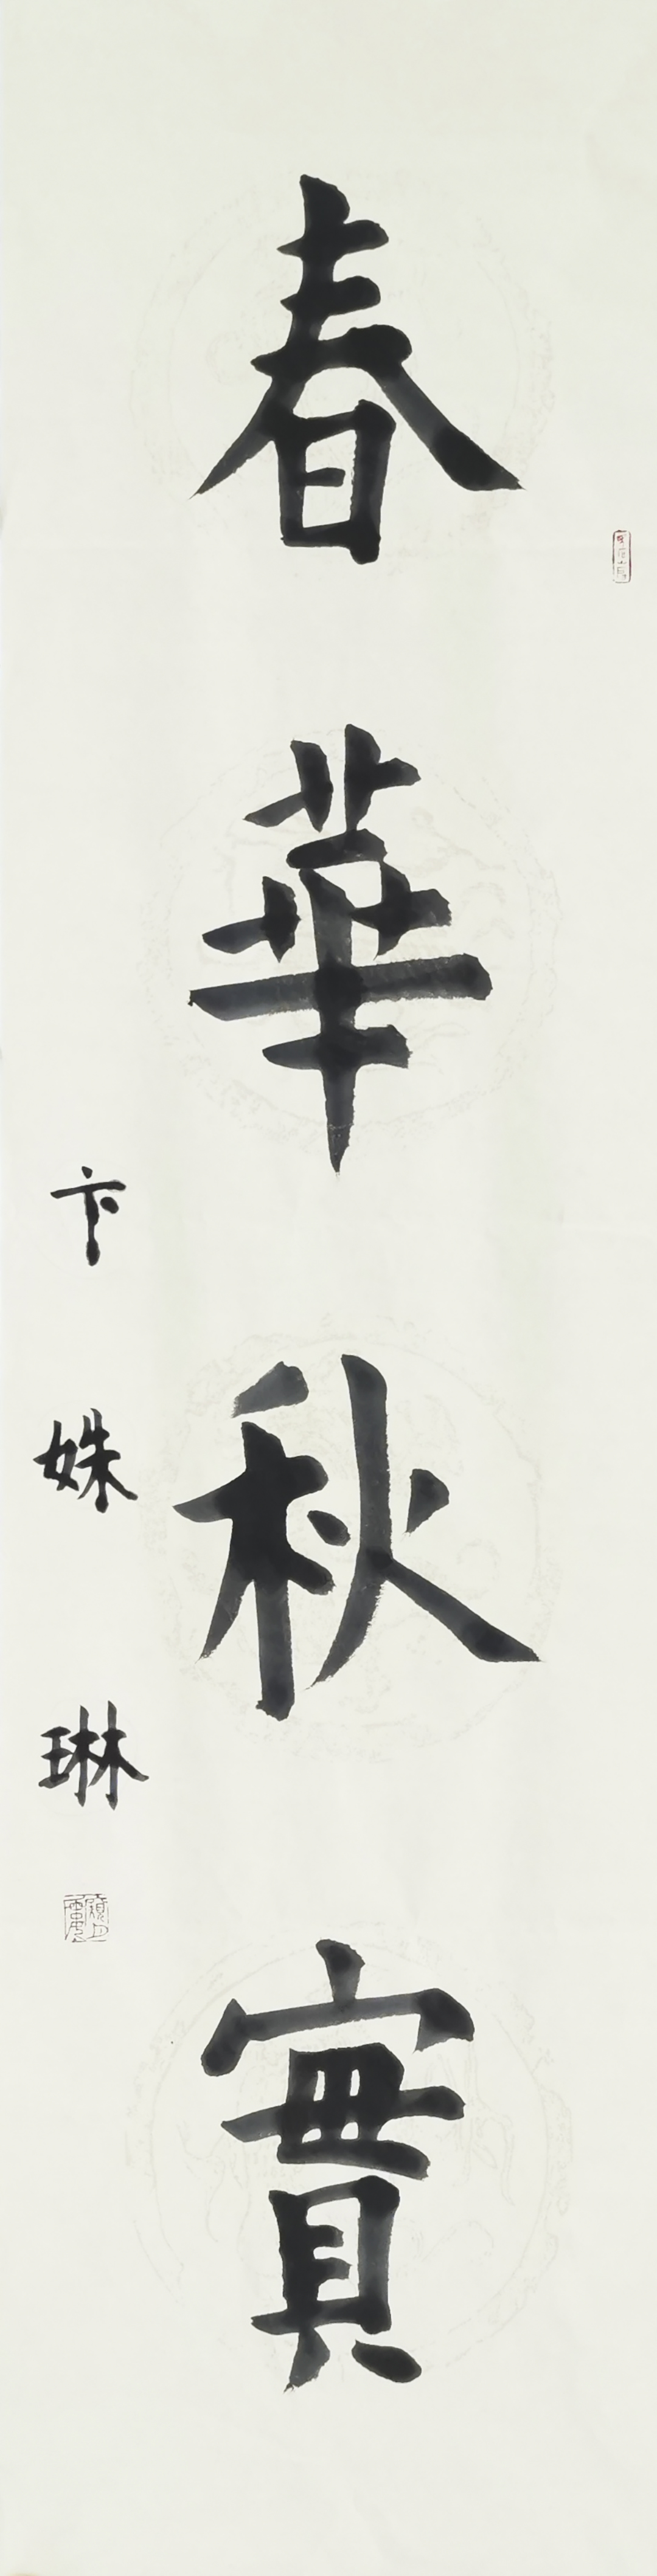 春華秋實
卞姝琳